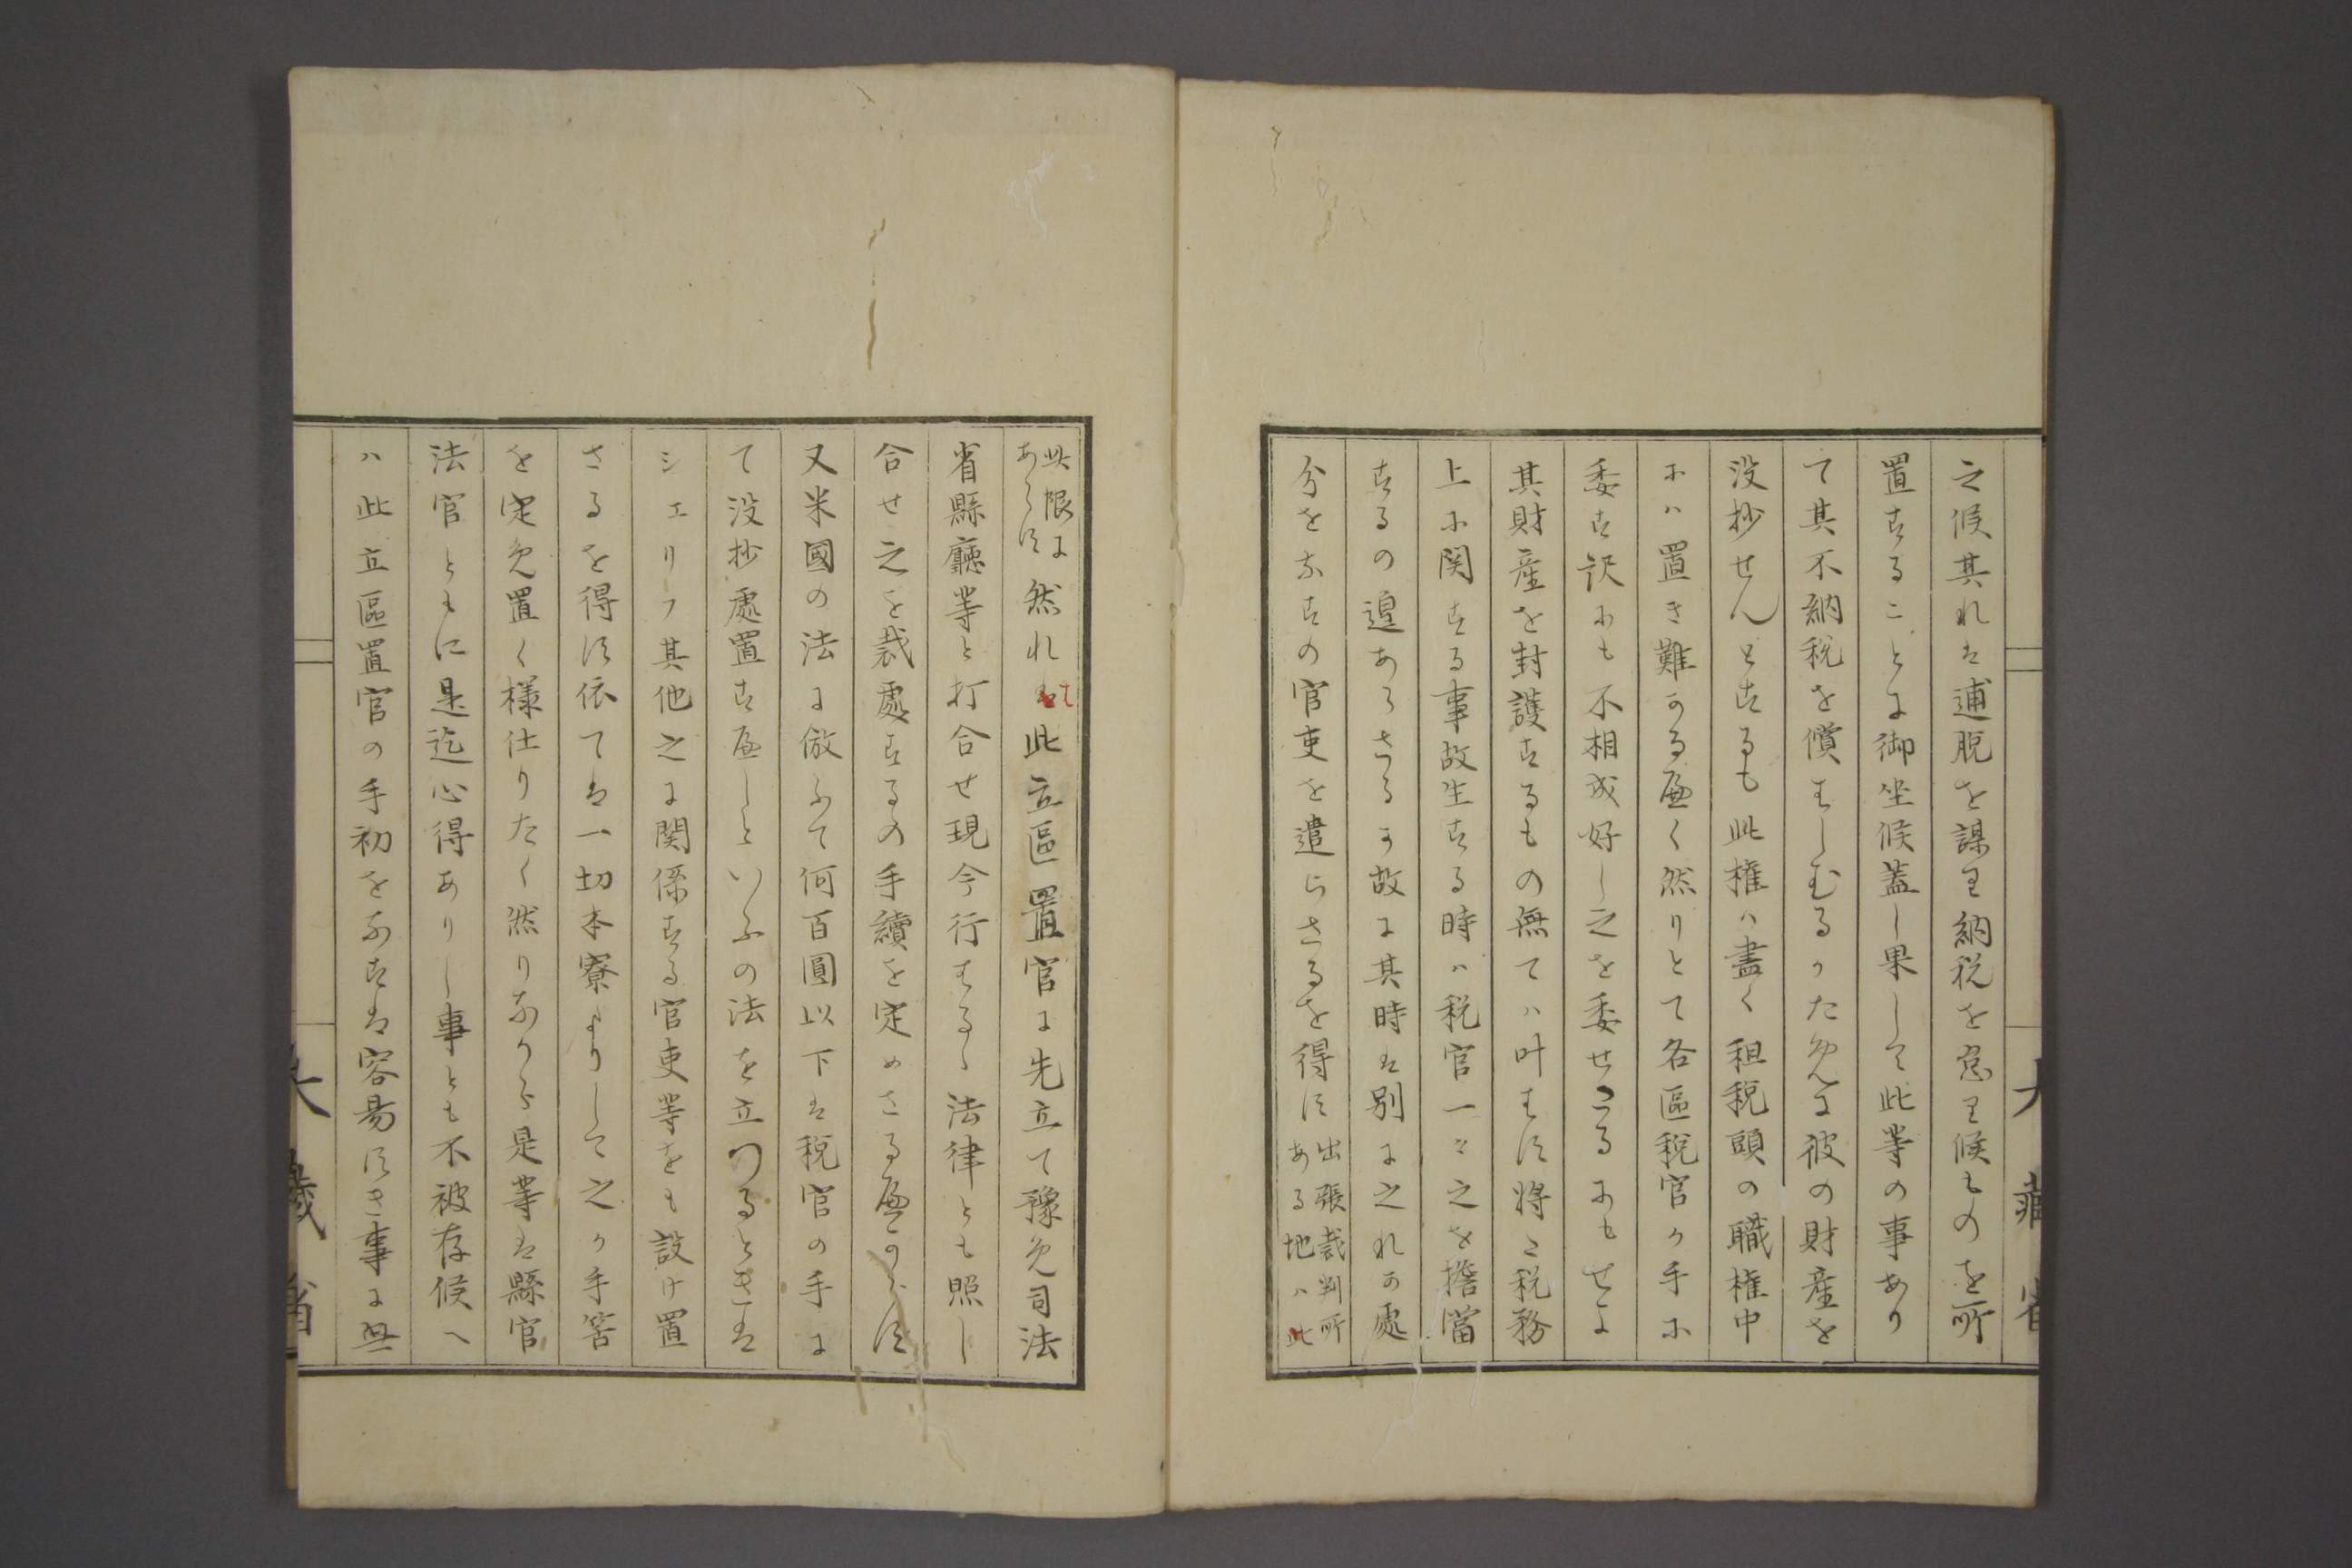 之候其れは逋脱を謀り納税を怠り候ものを所
置することに御坐候蓋し果して此等の事あり
て其不納税を償はしむるかために彼の財産を
没抄せんとするも此権ハ盡く租税頭の職権中
にハ置き難かるへく然りとて各區税官か手に
委す訳にも不相成好し之を委せさるにもせよ
其財産を封護するもの無てハ叶はす將た税務
上に関する事故生する時ハ税官一々之を擔當
するの遑あらさるか故に其時は別に之れか處
分をなすの官吏を遣らさるを得す出張裁判所ある地ハ此
此限にあらす然れは此立區置官に先立て豫め司法
省縣廳等と打合せ現今行はるゝ法律とも照し
合せ之を裁處するの手續を定めさるへからす
又米國の法に倣ふて何百圓以下は税官の手に
て没抄處置すへしといふの法を立つるときは
シェリフ其他之に関係する官吏等をも設け置
さるを得す依ては一切本寮よりして之か手筈
を定め置く様仕りたく然りなから是等は縣官
法官ともに是迄心得ありし事とも不被存候へ
ハ此立區置官の手初をなすは容易すき事に無
大藏省
大藏省